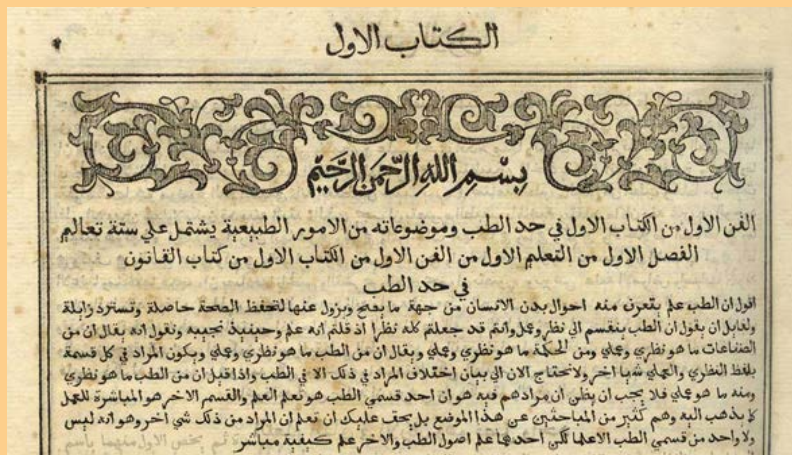 الكتاب الاول
بِسْمِ اللهِ الرَّحْمٰنِ الرَّحِيْمِ
الفن الاول من الكتاب الاول في حد الطب وموضوعاته من الامور الطبيعية يشتمل علي ستة تعاليم
الفصل الاول من التعلم الاول من الفن الاول من الكتاب الاول من كتاب القانون
في حد الطب
اقول ان الطب علم يتعرف منه احوال بدن الانسان من جهة ما يصح ويزول عنها لتحفظ الصحة حاصلة وتسترد زايلة
ولقايل ان يقول ان الطب ينقسم الي نظر وعمل وانتم قد جعلتم كله نظرا اذ قلتم انه علم وحينيذ نجيبه ونقول انه يقال ان من
الصناعات ما هو نظري وعملي ومن الحكمة ما هو نظري وعملي ويقال ان من الطب ما هو نظري وعملي ويكون المراد في كل قسمة
بلفظ النظري والعملي شيا اخر ولا نحتاج الان الي بيان اختلاف المراد في ذلك الا في الطب واذا قيل ان من الطب ما هو نظري
ومنه ما هو عملي فلا يجب ان يظن ان مرادهم فيه هو ان احد قسمي الطب هو تعلم العلم والقسم الاخر هو المباشرة للعمل
كما يذهب اليه وهم كثير من المباحثين عن هذا الموضع بل يحق عليك ان تعلم ان المراد من ذلك شي اخر وهو انه ليس
ولا واحد من قسمي الطب الا علما لكن احدهما علم اصول الطب والاخر علم كيفية مباشر
ثم يخص الاول منهما باسم